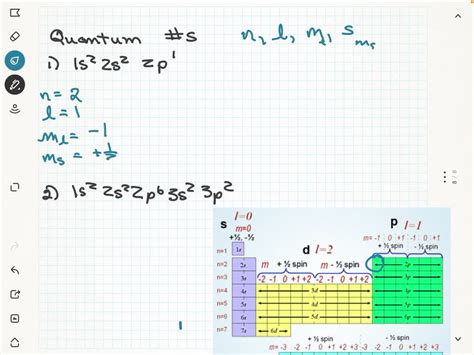 Quantum #s n, l, ml, s ms
1) 1s² 2s² 2p¹
n = 2
l = 1
ml = -1
ms = +½
2) 1s² 2s² 2p⁶ 3s² 3p²
s l=0
m=0
+½, -½
p l=1
m= -1 0 +1 -1 0 +1
+ ½ spin - ½ spin
d l=2
m + ½ spin m - ½ spin
-2 -1 0 +1 +2 -2 -1 0 +1 +2
n=1 1s
n=2 2s 2p
n=3 3s 3p
n=4 4s 3d 4p
n=5 5s 4d 5p
n=6 6s 5d 6p
n=7 7s 6d
+ ½ spin - ½ spin
m= -3 -2 -1 0 +1 +2 +3 -3 -2 -1 0 +1 +2 +3